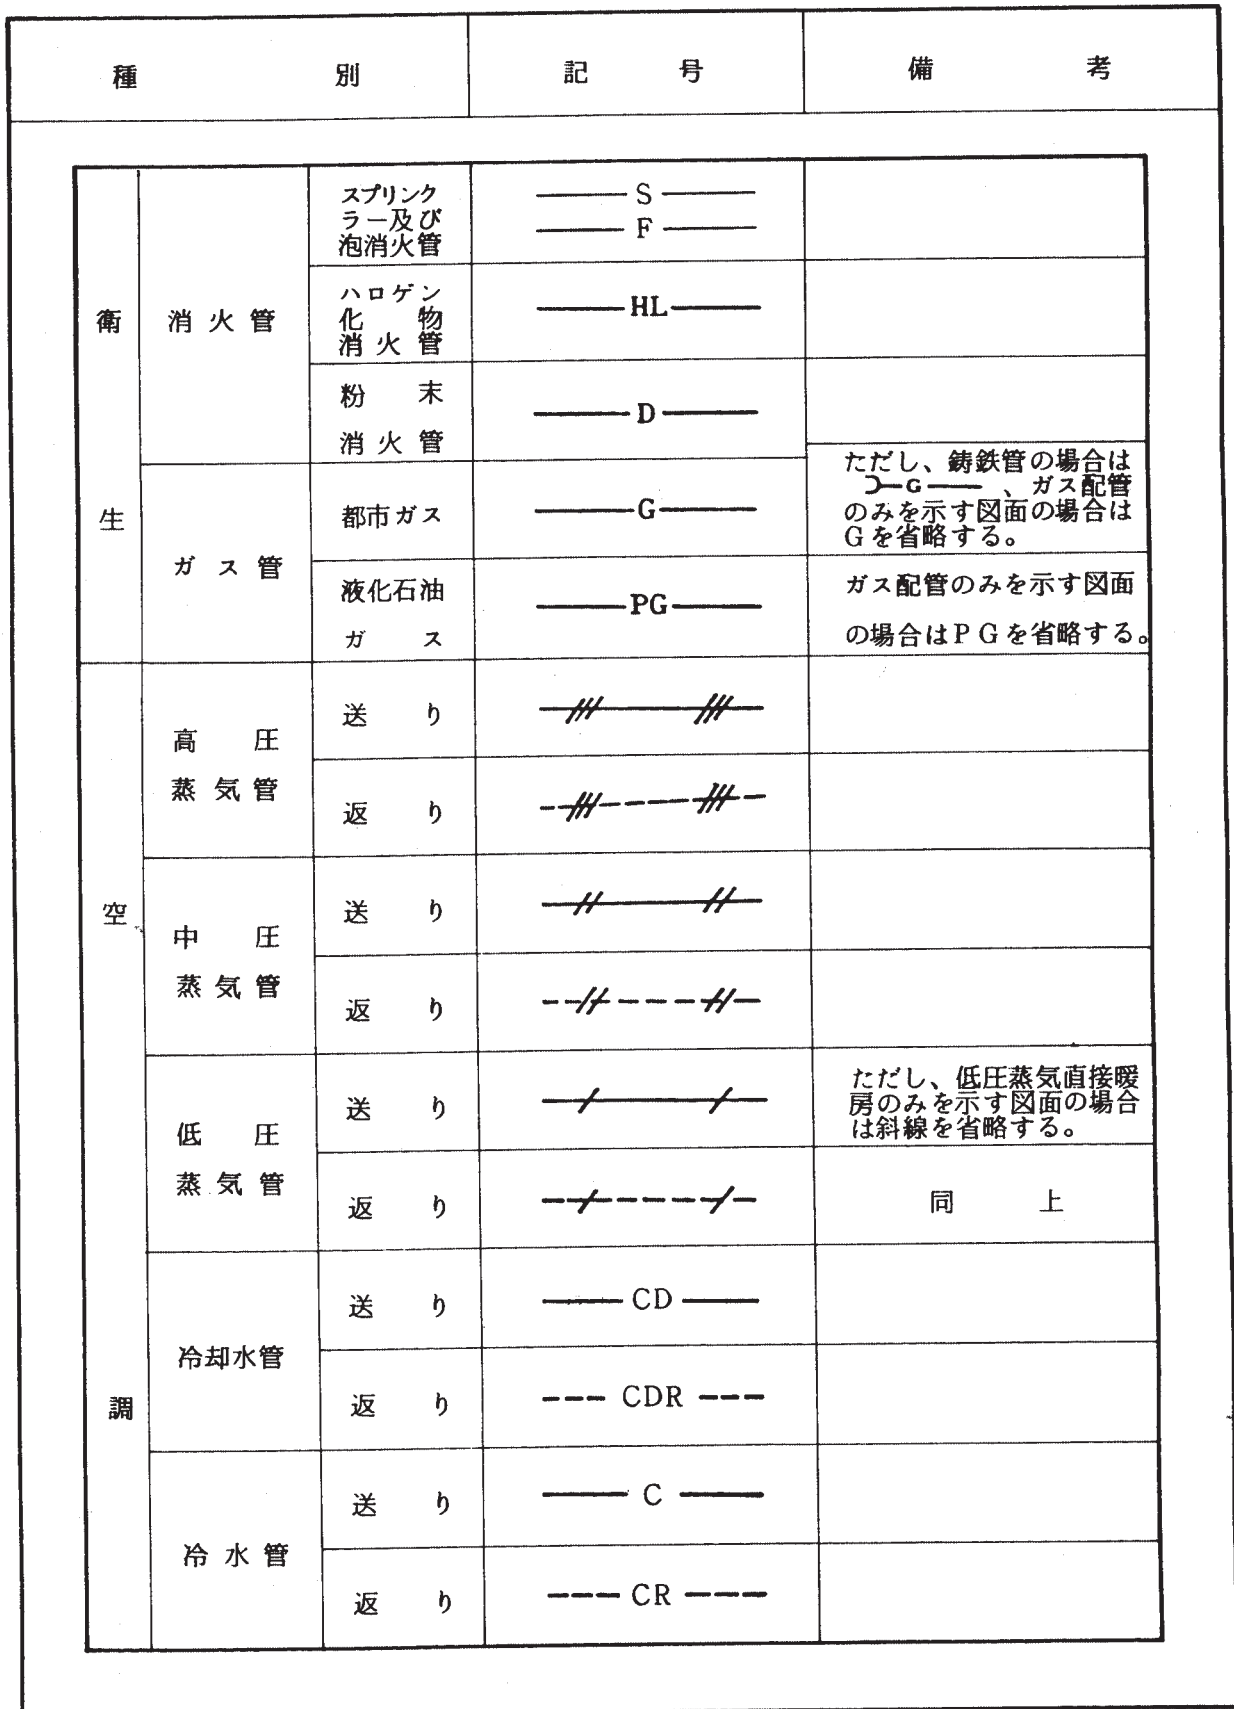 種別 記号 備考
衛生
消火管
スプリンク
ラー及び
泡消火管
S
F
ハロゲン
化物
消火管
HL
粉末
消火管
D
ガス管
都市ガス
G
ただし、鋳鉄管の場合は
G 、ガス配管
のみを示す図面の場合は
Gを省略する。
液化石油
ガス
PG
ガス配管のみを示す図面
の場合はPGを省略する。
空調
高圧
蒸気管
送り
返り
中圧
蒸気管
送り
返り
低圧
蒸気管
送り
ただし、低圧蒸気直接暖
房のみを示す図面の場合
は斜線を省略する。
返り
同上
冷却水管
送り
CD
返り
CDR
冷水管
送り
C
返り
CR